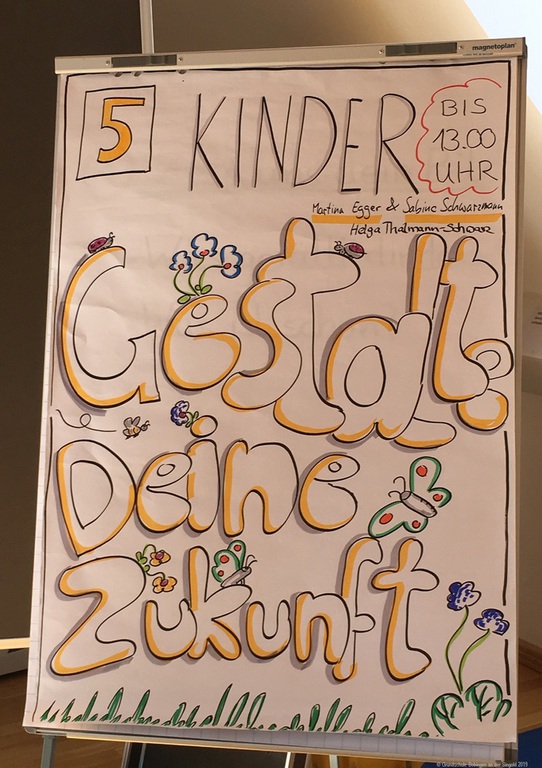 magnetoplan
5
KINDER
BIS
13.00
UHR
Martina Egger & Sabine Schwarzmann
Helga Thalmann-Schwarz
Gestalte
Deine
Zukunft